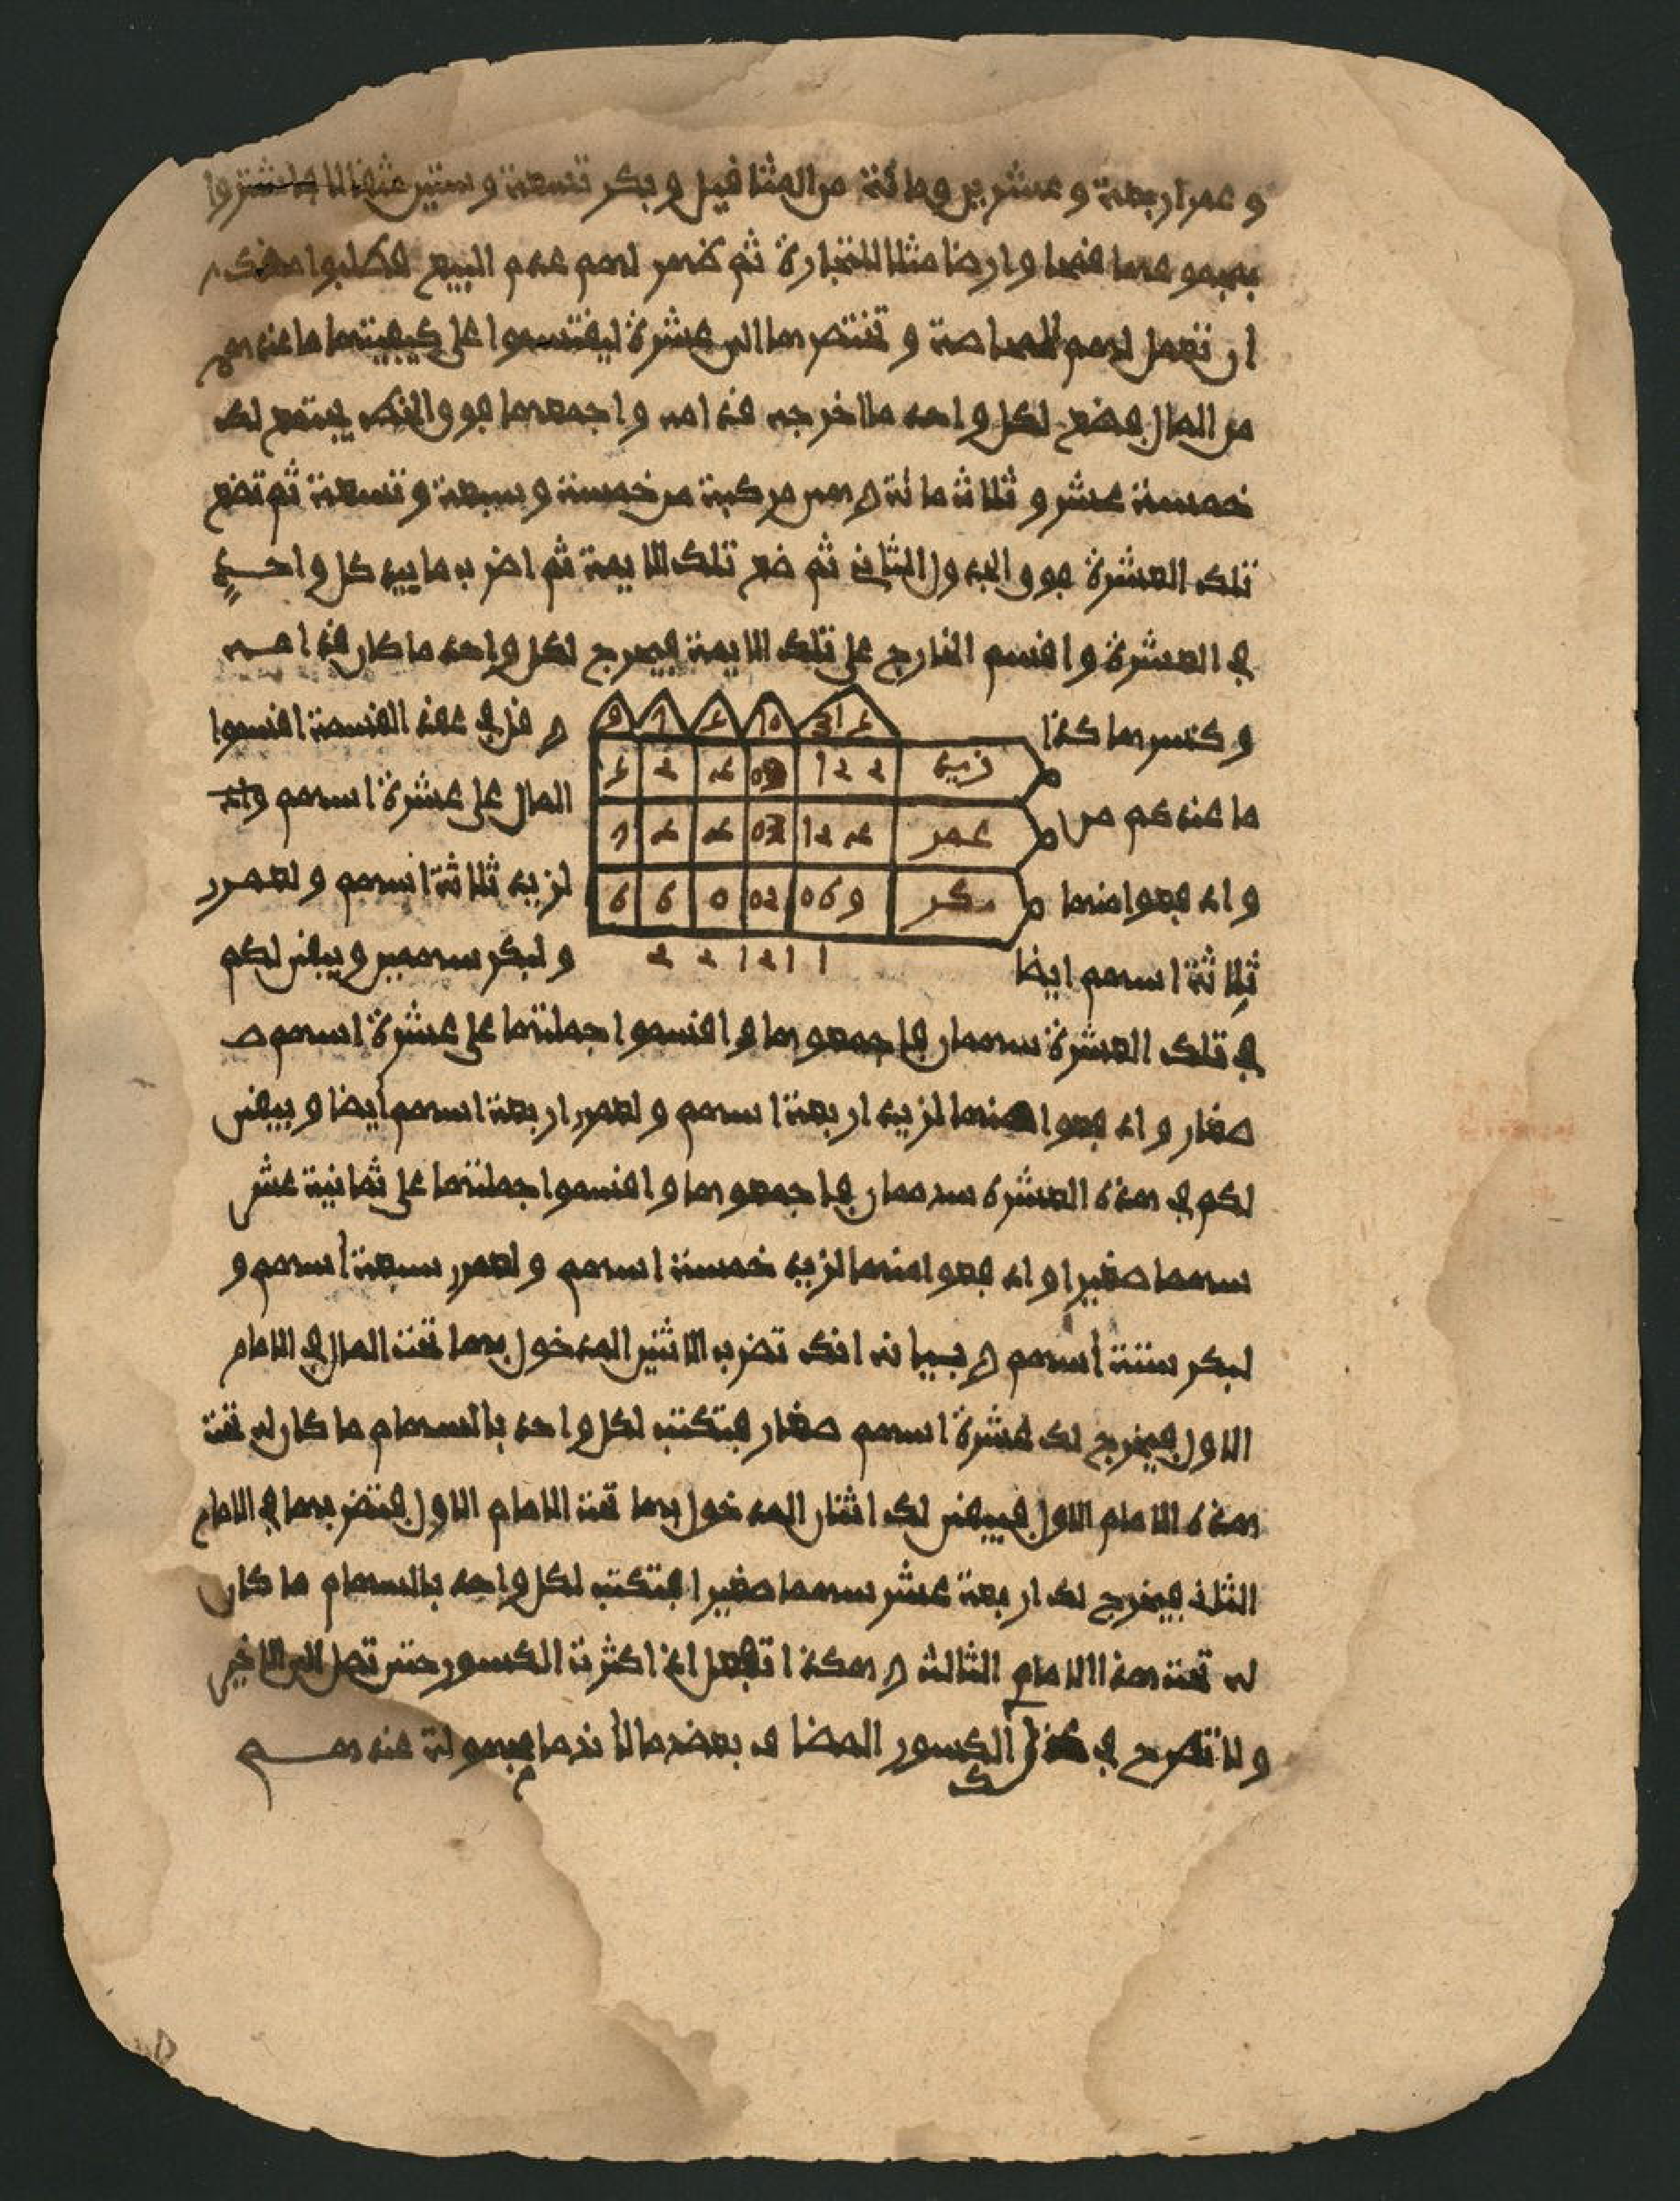 و عمر اربعة و عشرين ومائة من المثاقيل و بكر تسعة و ستين مثقالا فاشتروا
بمجموعها قمحا وارضا مثلا للتجارة ثم ظهر لهم عدم البيع فطلبوا منك
ان تعمل لهم المحاصة و تختصرها الى عشرة ليقتسموا على كيفيتها ما عندهم
من المال فضع لكل واحد ما اخرجه قدامه و اجمعها فوق الخط يجتمع لك
خمسة عشر و ثلاثمائة وهي مركبة من خمسة و سبعة و تسعة ثم تضع
تلك العشرة فوق الجدول الثاني ثم ضع تلك الايمة ثم اضرب ما بيد كل واحد
في العشرة و اقسم الخارج على تلك الايمة فيخرج لكل واحد ما كان قدامه
و كسرها كذا
9 7 4 10 314
زيد 122 03 4 2 4
ما عندكم من
عمر 124 03 4 4 7
و ادفعوا منها
بكر 069 02 0 6 6
ثلاثة اسهم ايضا
1 1 2 1 2 2
و قل في عقد القسمة اقسموا
المال على عشرة اسهم
لزيد ثلاثة اسهم و لعمرو
و لبكر سهمين و يبقى لكم
في تلك العشرة سهمان فاجمعوها و اقسموا جملتها على عشرة اسهم ص
صغار و ادفعوا منها لزيد اربعة اسهم و لعمرو اربعة اسهم أيضا و يبقى
لكم في هذه العشرة سهمان فاجمعوها و اقسموا جملتها على ثمانية عشر
سهما صغيرا و ادفعوا منها لزيد خمسة اسهم و لعمرو سبعة أسهم و
لبكر ستة أسهم و بيانه انك تضرب الاثنين المدخول بهما تحت المال في الامام
الاول فيخرج لك عشرة اسهم صغار فتكتب لكل واحد بالسهام ما كان له تحت
هذه الامام الاول فيبقى لك اثنان المدخول بهما تحت الامام الاول فتضربهما في الامام
الثاني فيخرج لك اربعة عشر سهما صغيرا فتكتب لكل واحد بالسهام ما كان
له تحت هذا الامام الثالث و هكذا تفعل اذا كثرت الكسور حتى تصل الى الاخير
و لا تطرح في الكسور المضاف بعضها لأنها مجهولة عندهم